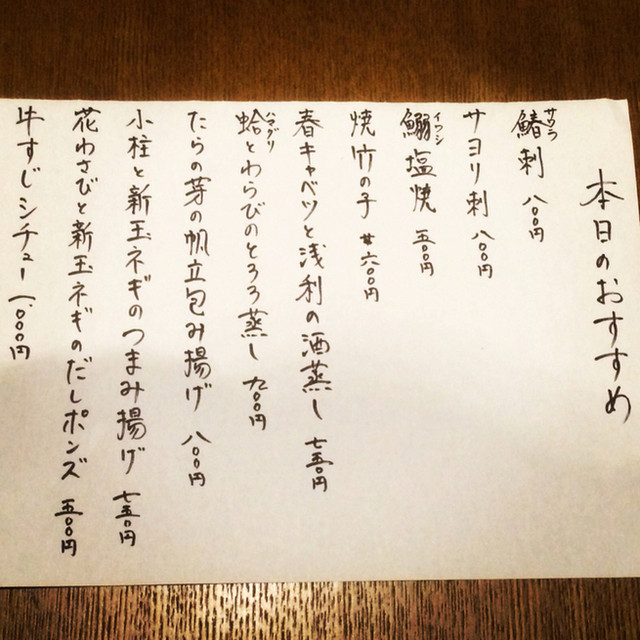 本日のおすすめ
鰆刺 八〇〇円
サワラ
サヨリ刺 八〇〇円
鰯塩焼 五〇〇円
イワシ
焼竹の子 六〇〇円
春キャベツと浅利の酒蒸し 七五〇円
蛤とわらびのとろろ蒸し 九〇〇円
ハマグリ
たらの芽の帆立包み揚げ 八〇〇円
小柱と新玉ネギのつまみ揚げ 七五〇円
花わさびと新玉ネギのだしポンズ 五〇〇円
牛すじシチュー 一、〇〇〇円